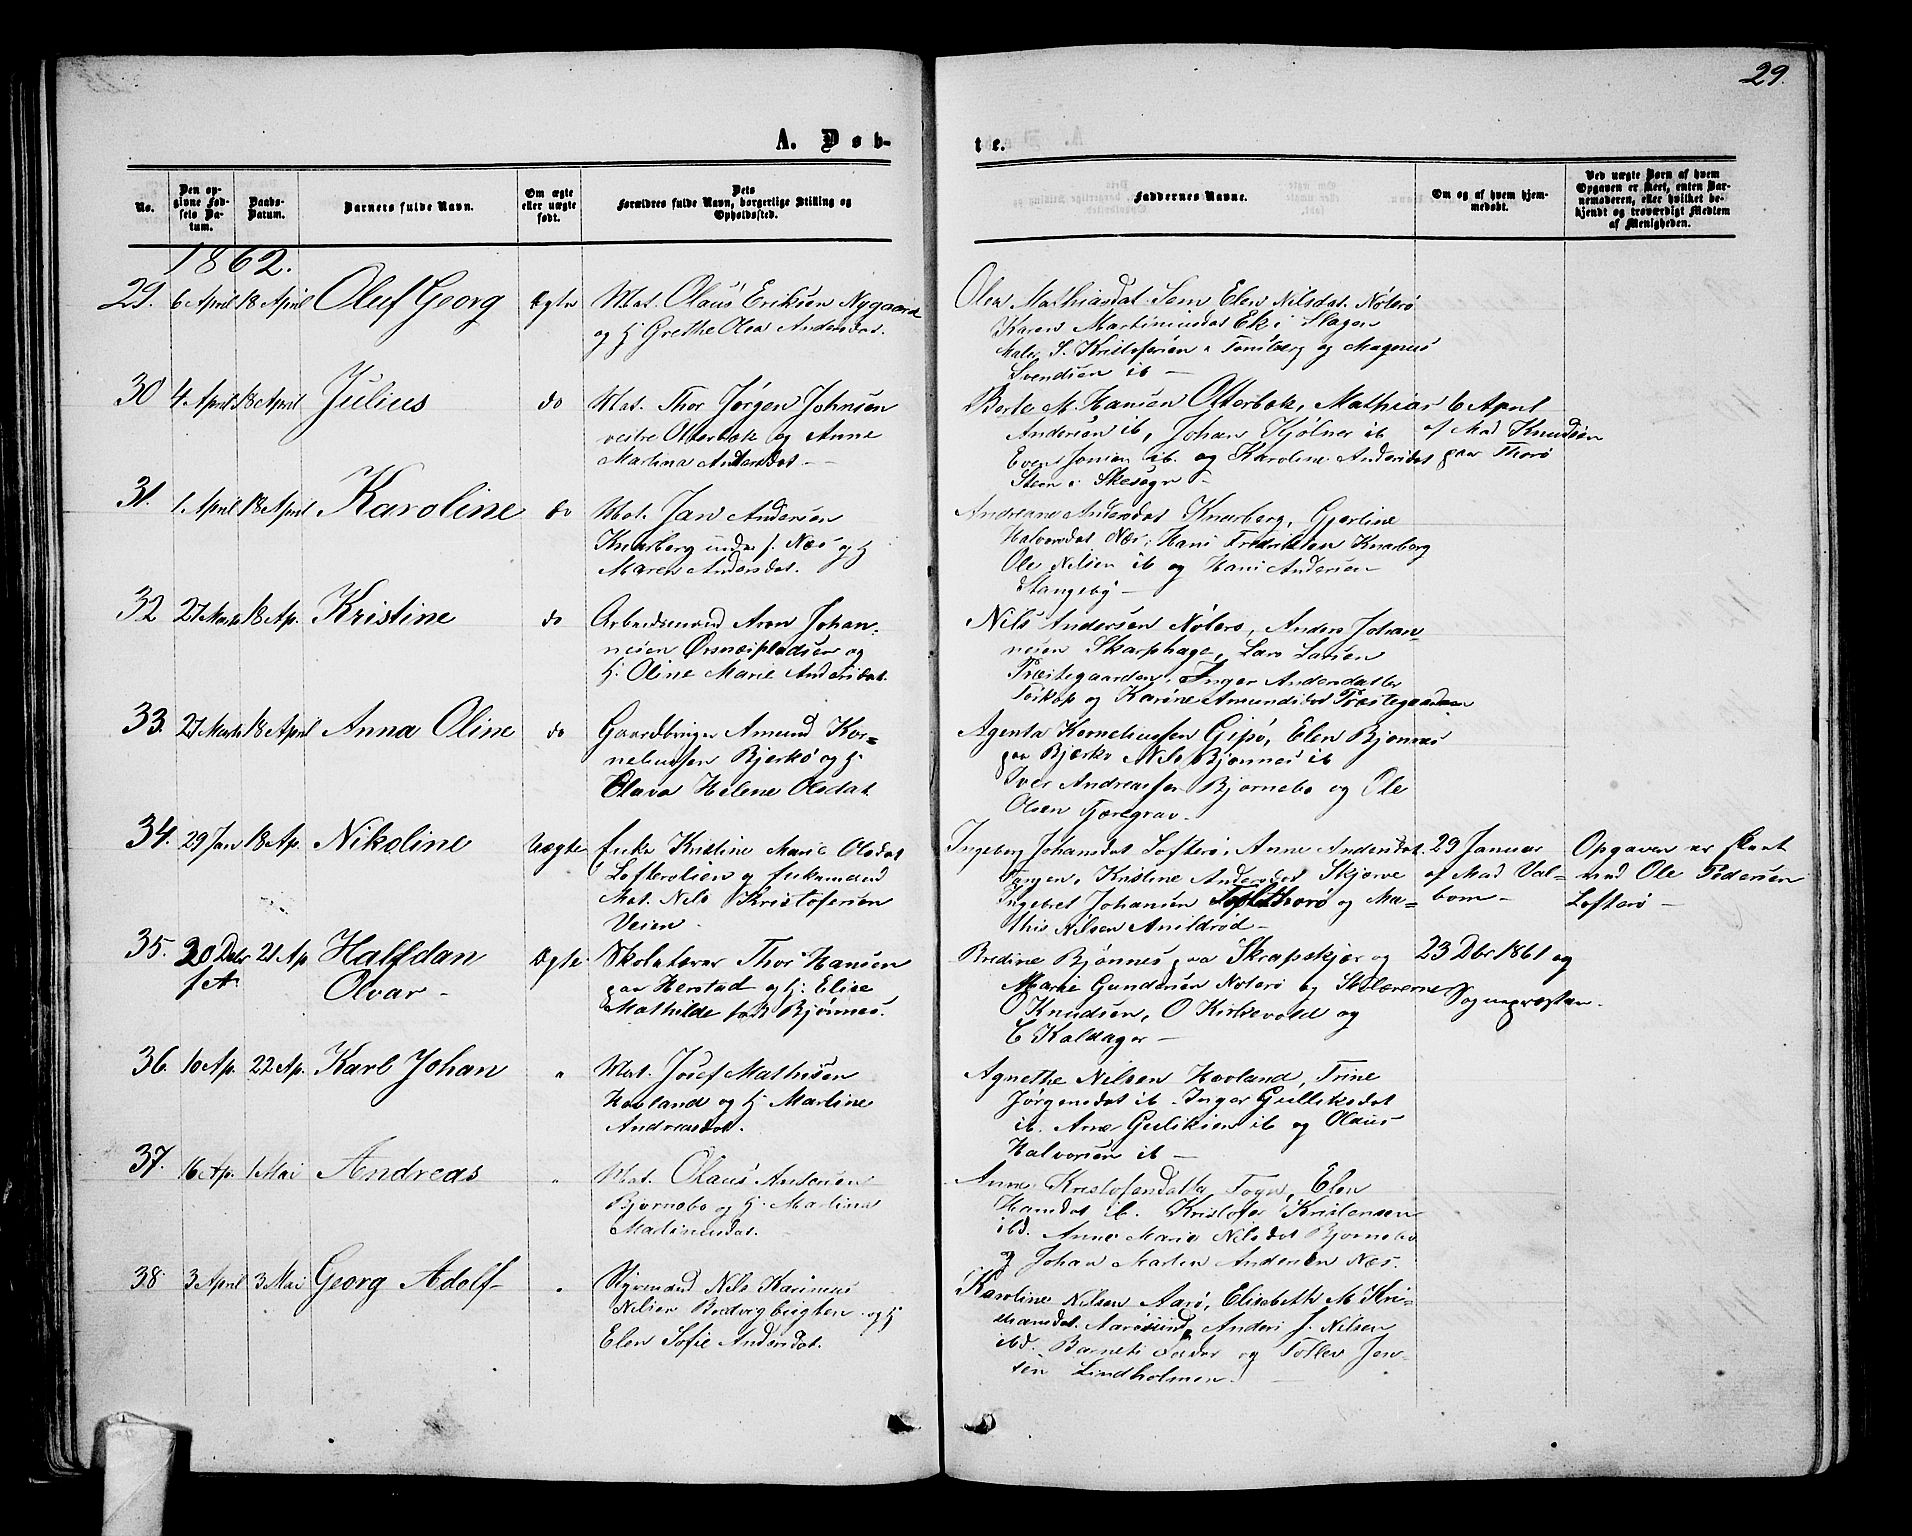 29.
A. Døb-
te.
No.
Den opgivne Fødsels Datum.
Daabs-Datum.
Barnets fulde Navn.
Om ægte eller uægte født.
Dets Forældres fulde Navn, borgerlige Stilling og Opholdssted.
Faddernes Navne.
Om og af hvem hjemmedøbt.
Ved uægte Børn af hvem Opgaven er skeet, enten Barnemoderen, eller hvilket bekjendt og troværdigt Medlem af Menigheden.
1862.
29. 6 April 18 April Oluf Georg Ægte Mat. Olaus Eriksen Nygaard
og Hj Grethe Olea Andersdat.
Olea Mathiasdat Sem Elen Nilsdat. Nøterø
Karen Martiniusdat Ek i Slagen
Maler S. Kristofersen i Tønsberg og Magnus
Svendsen ib —
30 4 April 18 April Julius do Mat. Thor Jørgen Johnsen
vestre Otterbæk og Anne
Martina Andersdat. —
Berte M. Hansen Otterbæk, Mathias
Andersen ib, Johan Kjølner ib
Even Jonsen ib. og Karoline Andersdat
Steen i Skesogn —
6 April
af Mad Knudsen
paa Thorø
31. 1 April 18 April Karoline do Mat. Jan Andersen
Knarberg under f. Næs og Hj
Maren Andersdat.
Andreane Andersdat Knarberg, Gjerline
Halvorsdat Næs, Hans Fredriksen Knarberg
Ole Nilsen ib og Hans Andersen
Stangeby —
32 27 Marts 18 Ap. Kristine do Arbeidsmand Aron Johan-
nesen Ørsnæspladsen og
Hj. Oline Marie Andersdat.
Nils Andersen Nøterø, Anders Johan-
nesen Skarphage, Lars Larsen
Præstegaarden, Inger Andersdatter
Torkop og Karine Amundsdat Præstegaarden
33. 27 Marts 18 April Anna Oline do Gaardbruger Amund Kor-
neliussen Bjerkø og Hj.
Olava Helene Olsdat
Agenta Korneliussen Gipø, Elen Bjønnes
paa Bjerkø Nils Bjønnes ib
Iver Andreassen Bjørnebo og Ole
Olsen Fjæregrav.
34. 29 Jan 18 Ap. Nikoline Uægte Enke Kristine Marie Olsdat
Lofterølien og Enkemand
Mat. Nils Kristofersen
Veien
Ingeborg Johansdat Lofterø, Anne Andersdat
Tangen, Kristine Andersdat Skjerve
Ingebret Johansen Thorø og Ma-
this Nilsen Amildrød —
29 Januar
af Mad Val-
bom —
Opgaven er skeet
ved Ole Pedersen
Lofterø —
35. 20 Debr f A 21 Ap Halfdan
Olvar — Ægte Skolelærer Thor Hansen
paa Herstad og Hj. Elise
Mathilde født Bjønnes.
Bredine Bjønnes paa Skrapskjær og
Marie Gundersen Nøterø og Skolærerne
O Knudsen, O Kirkevold og
C Kaldager —
23 Dbr 1861 og
Sognepræsten.
36. 10 Ap. 22 Ap. Karl Johan " Mat. Josef Mathisen
Hovland og Hj. Martine
Andreasdat.
Agnethe Nilsen Hovland, Trine
Jørgensdat ib. Inger Gulliksdat
ib. Arne Gulliksen ib og Olaus
Halvorsen ib —
37. 16 Ap. 1 Mai Andreas " Mat. Olaus Andersen
Bjørnebo og Hj. Martine
Martinusdat.
Anne Kristofersdatter Togn, Elen
Hansdat ib. Kristofer Kristensen
ibd. Anne Marie Nilsdat Bjørnebo
og Johan Martin Andersen Næs.
38. 3 April 3 Mai Georg Adolf " Styrmand Nils Karinius
Nilsen Bredvigbugten og Hj
Elen Sofie Andersdat.
Karoline Nilsen Aarø, Elisabeth M. Kri-
stiansdat. Aarøsund, Anders J. Nilsen
ibd. Barnets Fader og Tollev Jen-
sen Lindholmen. —